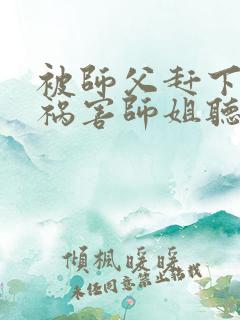 被師父赶下
祸害師姐聽
傾楓暖暖
未任同意禁止转载